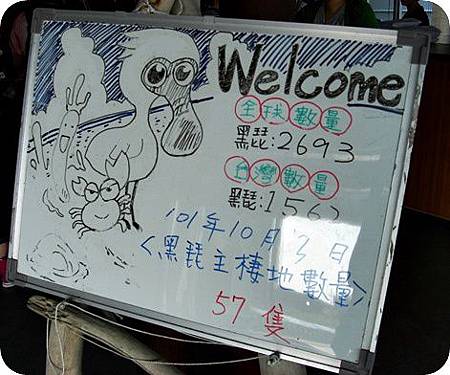 Welcome
全球數量
黑琵:2693
台灣數量
黑琵:1562
101年10月3日
<黑琵主棲地數量>
57隻